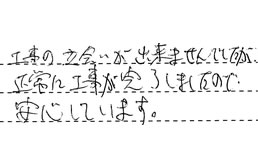 工事の立会いが出来ませんでしたが
正常に工事が完了しましたので
安心しています。